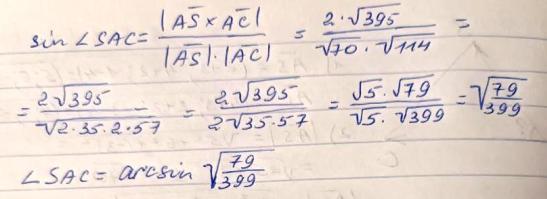 sin ∠SAC = |AS̄ × AC̄| / |AS̄|·|AC| = 2·√395 / √70·√114 =
= 2√395 / √2·35·2·57 = 2√395 / 2√35·57 = √5·√79 / √5·√399 = √79/399
∠SAC = arcsin √79/399